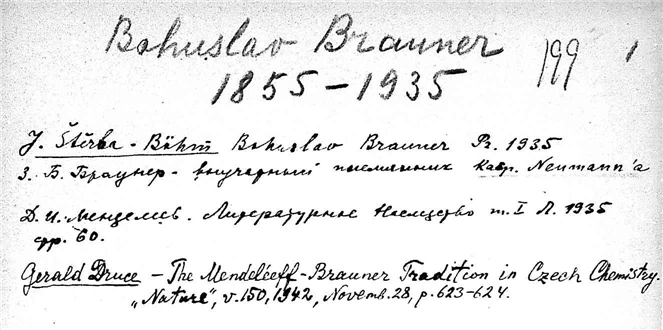 Bohuslav Brauner
1855-1935
199 1
J. Štěrba-Böhm Bohuslav Brauner Pr. 1935
З. Б. Браунер - внучатный племянник Neumann'a
Д. И. Менделеев. Литературное Наследство т. I Л. 1935
стр. 60.
Gerald Druce - The Mendeléeff-Brauner Tradition in Czech Chemistry.
„Nature", v. 150, 1942, Novemb. 28, p. 623-624.